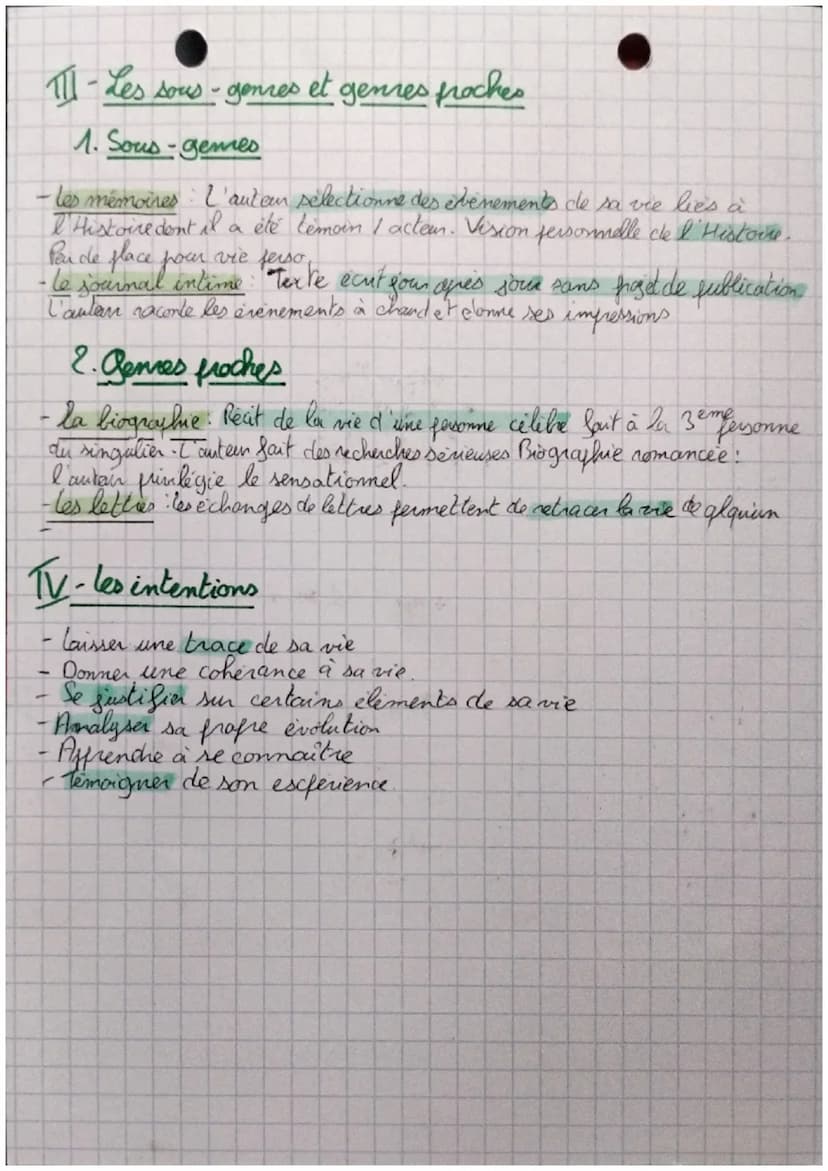 III - Les sous-genres et genres proches
1. Sous-genres
- Les mémoires : L'auteur sélectionne des évènements de sa vie liés à
l'Histoire dont il a été témoin / acteur. Vision personnelle de l'Histoire.
Peu de place pour vie perso.
- Le journal intime : Texte écrit jour après jour sans projet de publication.
L'auteur raconte les évènements à chaud et donne ses impressions
2. Genres proches
- La biographie : Récit de la vie d'une personne célèbre fait à la 3eme personne
du singulier. L'auteur fait des recherches sérieuses Biographie romancée :
l'auteur privilégie le sensationnel.
- Les lettres : les échanges de lettres permettent de retracer la vie de qlquun
-
IV - les intentions
- Laisser une trace de sa vie
- Donner une cohérance à sa vie.
- Se justifier sur certains éléments de sa vie
- Analyser sa propre évolution
- Apprendre à se connaître
- Témoigner de son escpérience.